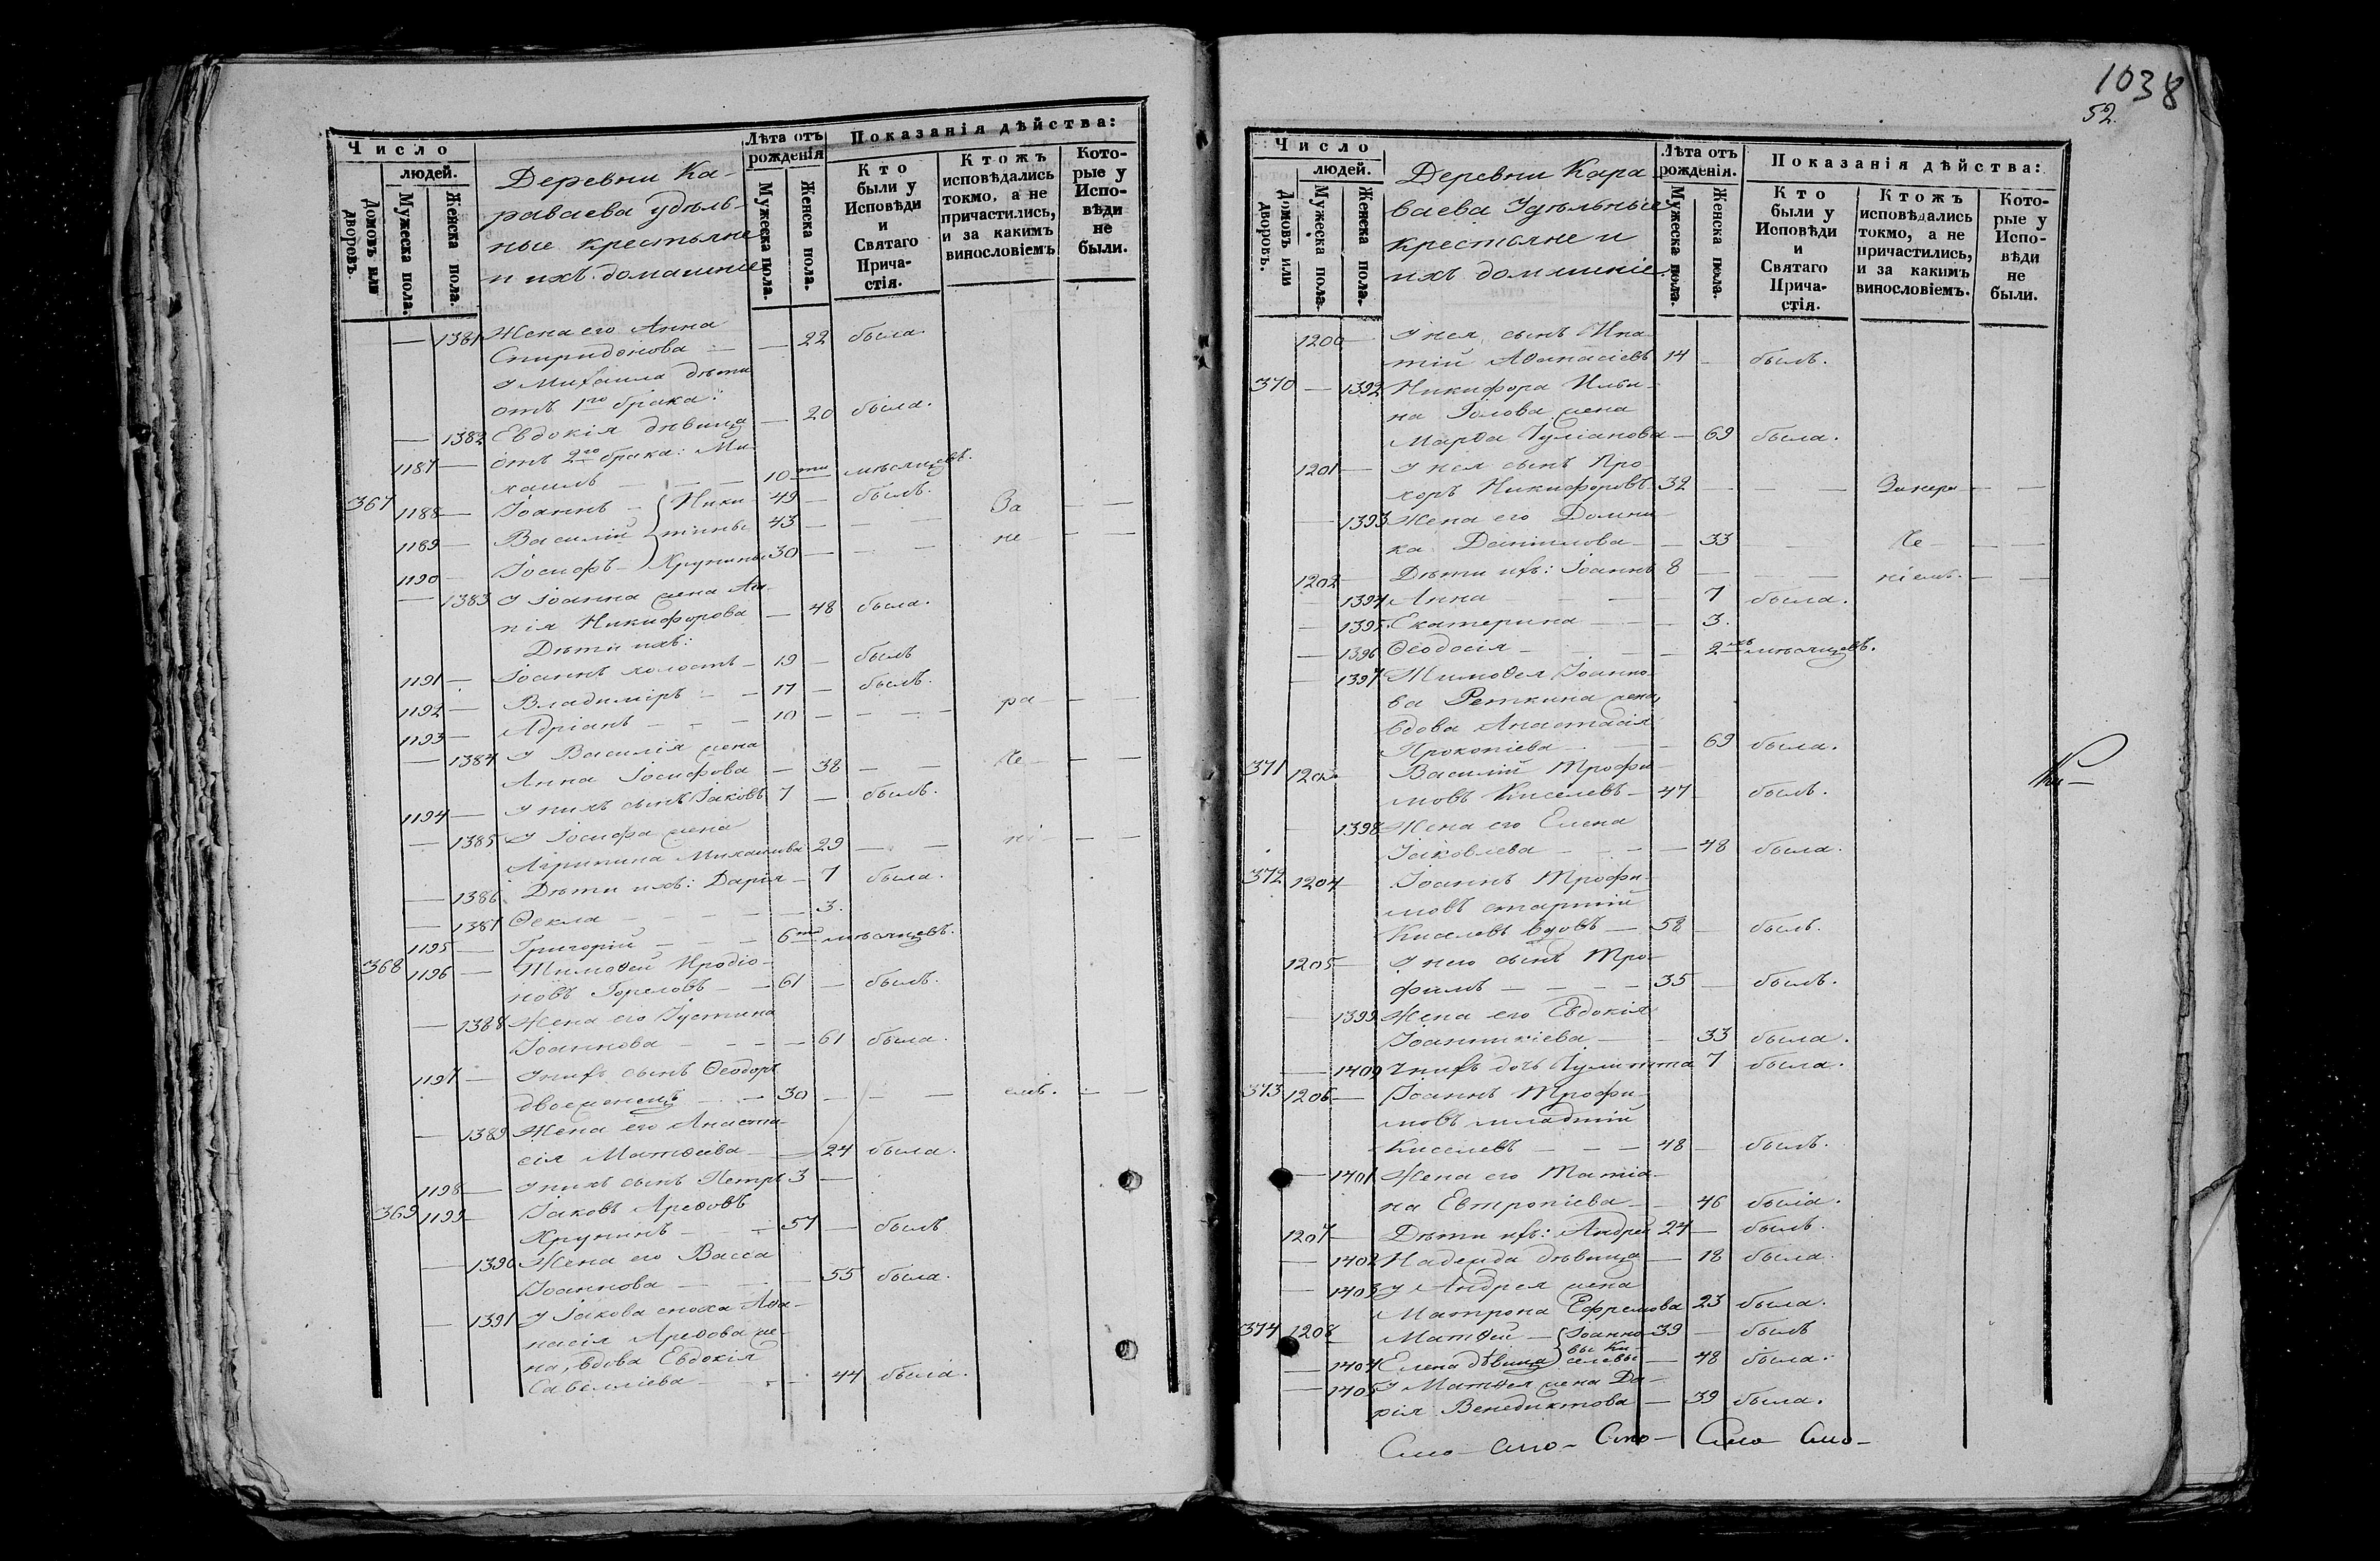 Число
людей.
Домовъ или дворовъ.
Мужеска пола.
Женска пола.
Деревни Ка-
раваева удѣль-
ные крестьяне
и ихъ домашніе
Лѣта отъ рожденія
Мужеска пола.
Женска пола.
Показанія дѣйства:
Кто были у Исповѣди и Святаго Прича-стія.
Ктожъ исповѣдались токмо, а не причастились, и за какимъ винословіемъ
Кото-рые у Испо-вѣди не были.
— 1381 Жена его Анна
Спиридонова — — 22 была.
У Михаила дѣти
отъ 1го брака:
— 1382 Евдокія дѣвица — 20 была.
1187 — отъ 2го брака: Ми-
хаилъ — — — 10ти мѣсяцевъ.
367 1188 — Іоаннъ — Ники- 49 — былъ.
1189 — Василій тины 43 — — — За — —
1190 — Іосифъ — Хрунины 30 — — — не — —
— 1383 У Іоанна жена
Никифорова — 48 была.
Дѣти ихъ:
1191 — Іоаннъ холостъ — 19 — былъ
1192 — Владиміръ — — 17 — былъ.
1193 — Адріанъ — — — 10 — — — — ра — — —
— 1384 У Василія жена
Анна Іосифова — 38 — — — —
1194 — У нихъ сынъ Іаковъ 7 — былъ.
— 1385 У Іосифа жена
Агрипина Михаилова 29 — — ні — — —
— 1386 Дѣти ихъ: Дарія — 7 была.
— 1387 Ѳекла — — — — — 3.
1195 — Григорій — — — 6ти мѣсяцевъ.
368 1196 — Тимоѳей Иродіо-
новъ Гореловъ — — 61 — былъ.
— 1388 Жена его Іустина
Іоаннова — — — — 61 была.
1197 — У нихъ сынъ Ѳеодоръ
двоеженецъ — — 30 — — — емъ. — —
— 1389 Жена его Анаста-
сія Матѳеева — — 24 была.
1198 — У нихъ сынъ Петръ 3 —
369 1199 — Іаковъ Ареѳовъ
Хрунинъ — — 57 — былъ
— 1390 Жена его Васса
Іоаннова — — — 55 была.
— 1391 У Іакова сноха Аѳа-
насія Ареѳова же-
на, вдова Евдокія
Савелліева — — — 44 была.
1038
52.
Число
людей.
Домовъ или дворовъ.
Мужеска пола.
Женска пола.
Деревни Кара
ваева Удѣльные
крестьяне и
ихъ домашніе.
Лѣта отъ рожденія.
Мужеска пола.
Женска пола.
Показанія дѣйства:
Кто были у Исповѣди и Святаго Прича-стія.
Ктожъ исповѣдались токмо, а не причастились, и за какимъ винословіемъ.
Кото-рые у Испо-вѣди не были.
1200 — У нея сынъ Ипа-
тій Аѳанасіевъ 14 — былъ.
370 — 1392 Никифора Ильи-
на Голова жена
Марѳа Іуліанова — 69 была.
1201 — У нея сынъ Про-
хоръ Никифоровъ 32 — — — — —
— 1393 Жена его Домни-
ка Даніилова — — 33 — — —
1202 — Дѣти ихъ: Іоаннъ 8 — — — ніемъ. — —
— 1394 Анна — — — — 7 была.
— 1395 Екатерина — — — 3.
— 1396 Ѳеодосія — — — — 2хъ мѣсяцевъ.
— 1397 Тимоѳея Іоанно-
ва Реткина жена,
вдова Анастасія
Прокопіева — — — 69 была.
371 1203 Василій Трофи-
мовъ Киселевъ — 47 — былъ.
— 1398 Жена его Елена
Іаковлева — — — — 48 была.
372 1204 — Іоаннъ Трофи-
мовъ старшій
Киселевъ вдовъ — 58 — былъ.
1205 — У него сынъ Тро-
фимъ — — — — 35 — былъ.
— 1399 Жена его Евдокія
Іоанникіева — — 33 была.
— 1400 У нихъ дочь Іулитта 7 была.
373 1206 — Іоаннъ Трофи-
мовъ младшій
Киселевъ — — — 48 — былъ.
— 1401 Жена его Татіа-
на Евтропіева — — 46 была.
1207 — Дѣти ихъ: Андрей 24 — былъ.
— 1402 Надежда дѣвица — 18 была.
— 1403 У Андрея жена
Матрона Ефремова 23 была.
374 1208 Матѳей — Іоанно- 39 — былъ
— 1404 Елена дѣвица вы Ки-селевы — 48 была.
— 1405 У Матѳея жена Да-
рія Венедиктова — 39 была.